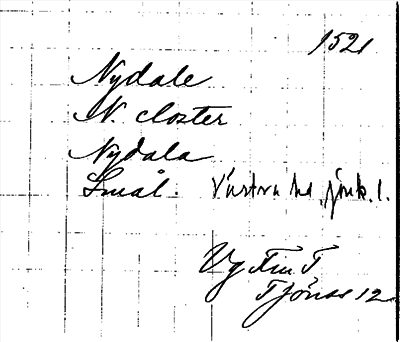 1521
Nydale
N. closter
Nydala
Smål. Västra hd, jönk. l.
Vg Fm T
Tjönss 12